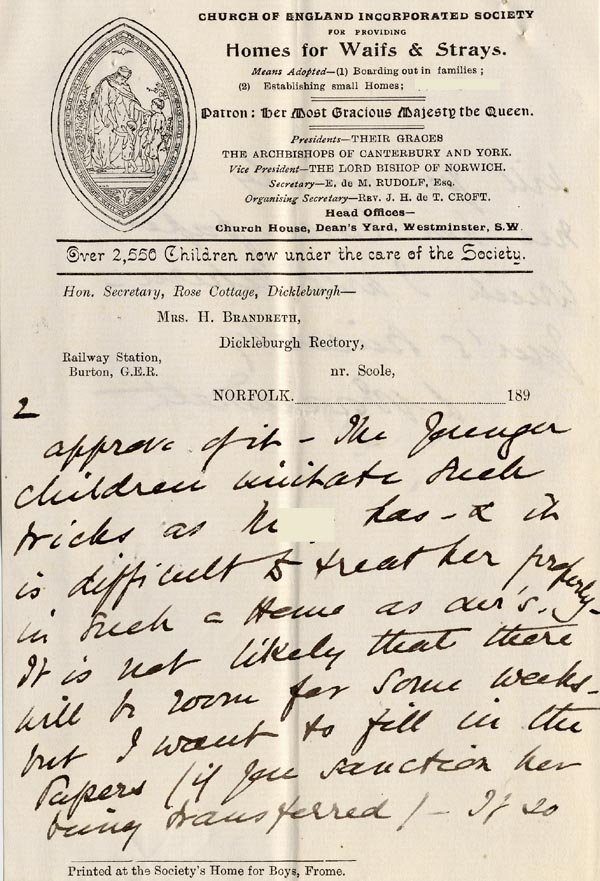 CHURCH OF ENGLAND INCORPORATED SOCIETY
FOR PROVIDING
Homes for Waifs & Strays.
Means Adopted—(1) Boarding out in families;
(2) Establishing small Homes;
Patron: Her Most Gracious Majesty the Queen.
Presidents—THEIR GRACES
THE ARCHBISHOPS OF CANTERBURY AND YORK.
Vice President—THE LORD BISHOP OF NORWICH.
Secretary—E. de M. RUDOLF, Esq.
Organising Secretary—Rev. J. H. de T. CROFT.
Head Offices—
Church House, Dean's Yard, Westminster, S.W.
Over 2,550 Children now under the care of the Society.
Hon. Secretary, Rose Cottage, Dickleburgh—
Mrs. H. Brandreth,
Dickleburgh Rectory,
Railway Station,
Burton, G.E.R.
nr. Scole,
NORFOLK. 189
2
approve of it - The Younger
children imitate such
tricks as has - & it
is difficult to treat her properly -
in such a Home as our's.
It is not likely that there
will be room for some weeks -
but I want to fill in the
Papers (if you sanction her
being transferred) - If so
Printed at the Society's Home for Boys, Frome.